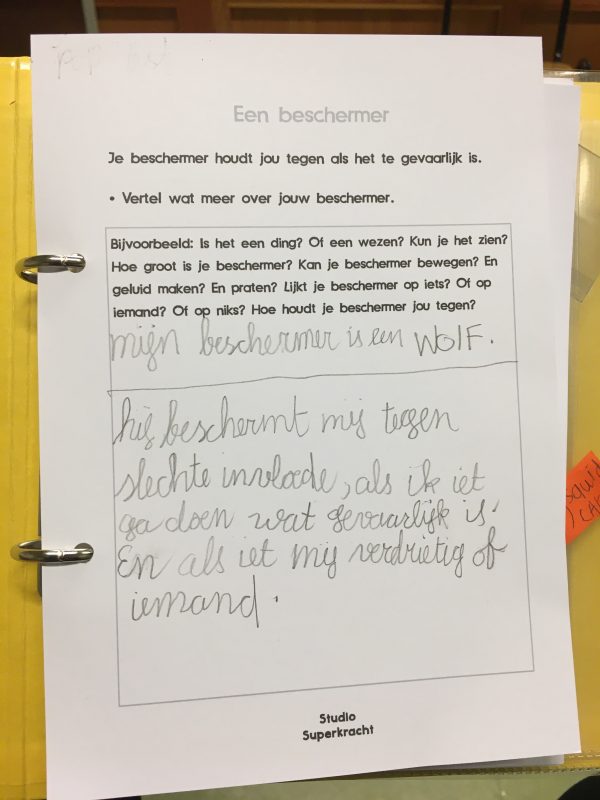 Een beschermer
Je beschermer houdt jou tegen als het te gevaarlijk is.
• Vertel wat meer over jouw beschermer.
Bijvoorbeeld: Is het een ding? Of een wezen? Kun je het zien?
Hoe groot is je beschermer? Kan je beschermer bewegen? En
geluid maken? En praten? Lijkt je beschermer op iets? Of op
iemand? Of op niks? Hoe houdt je beschermer jou tegen?
mijn beschermer is een WOlF.
hij beschermt mij tegen
slechte invloede, als ik iet
ga doen wat gevaarlijk is.
En als iet mij verdrietig of
iemand.
Squid
Studio
Superkracht